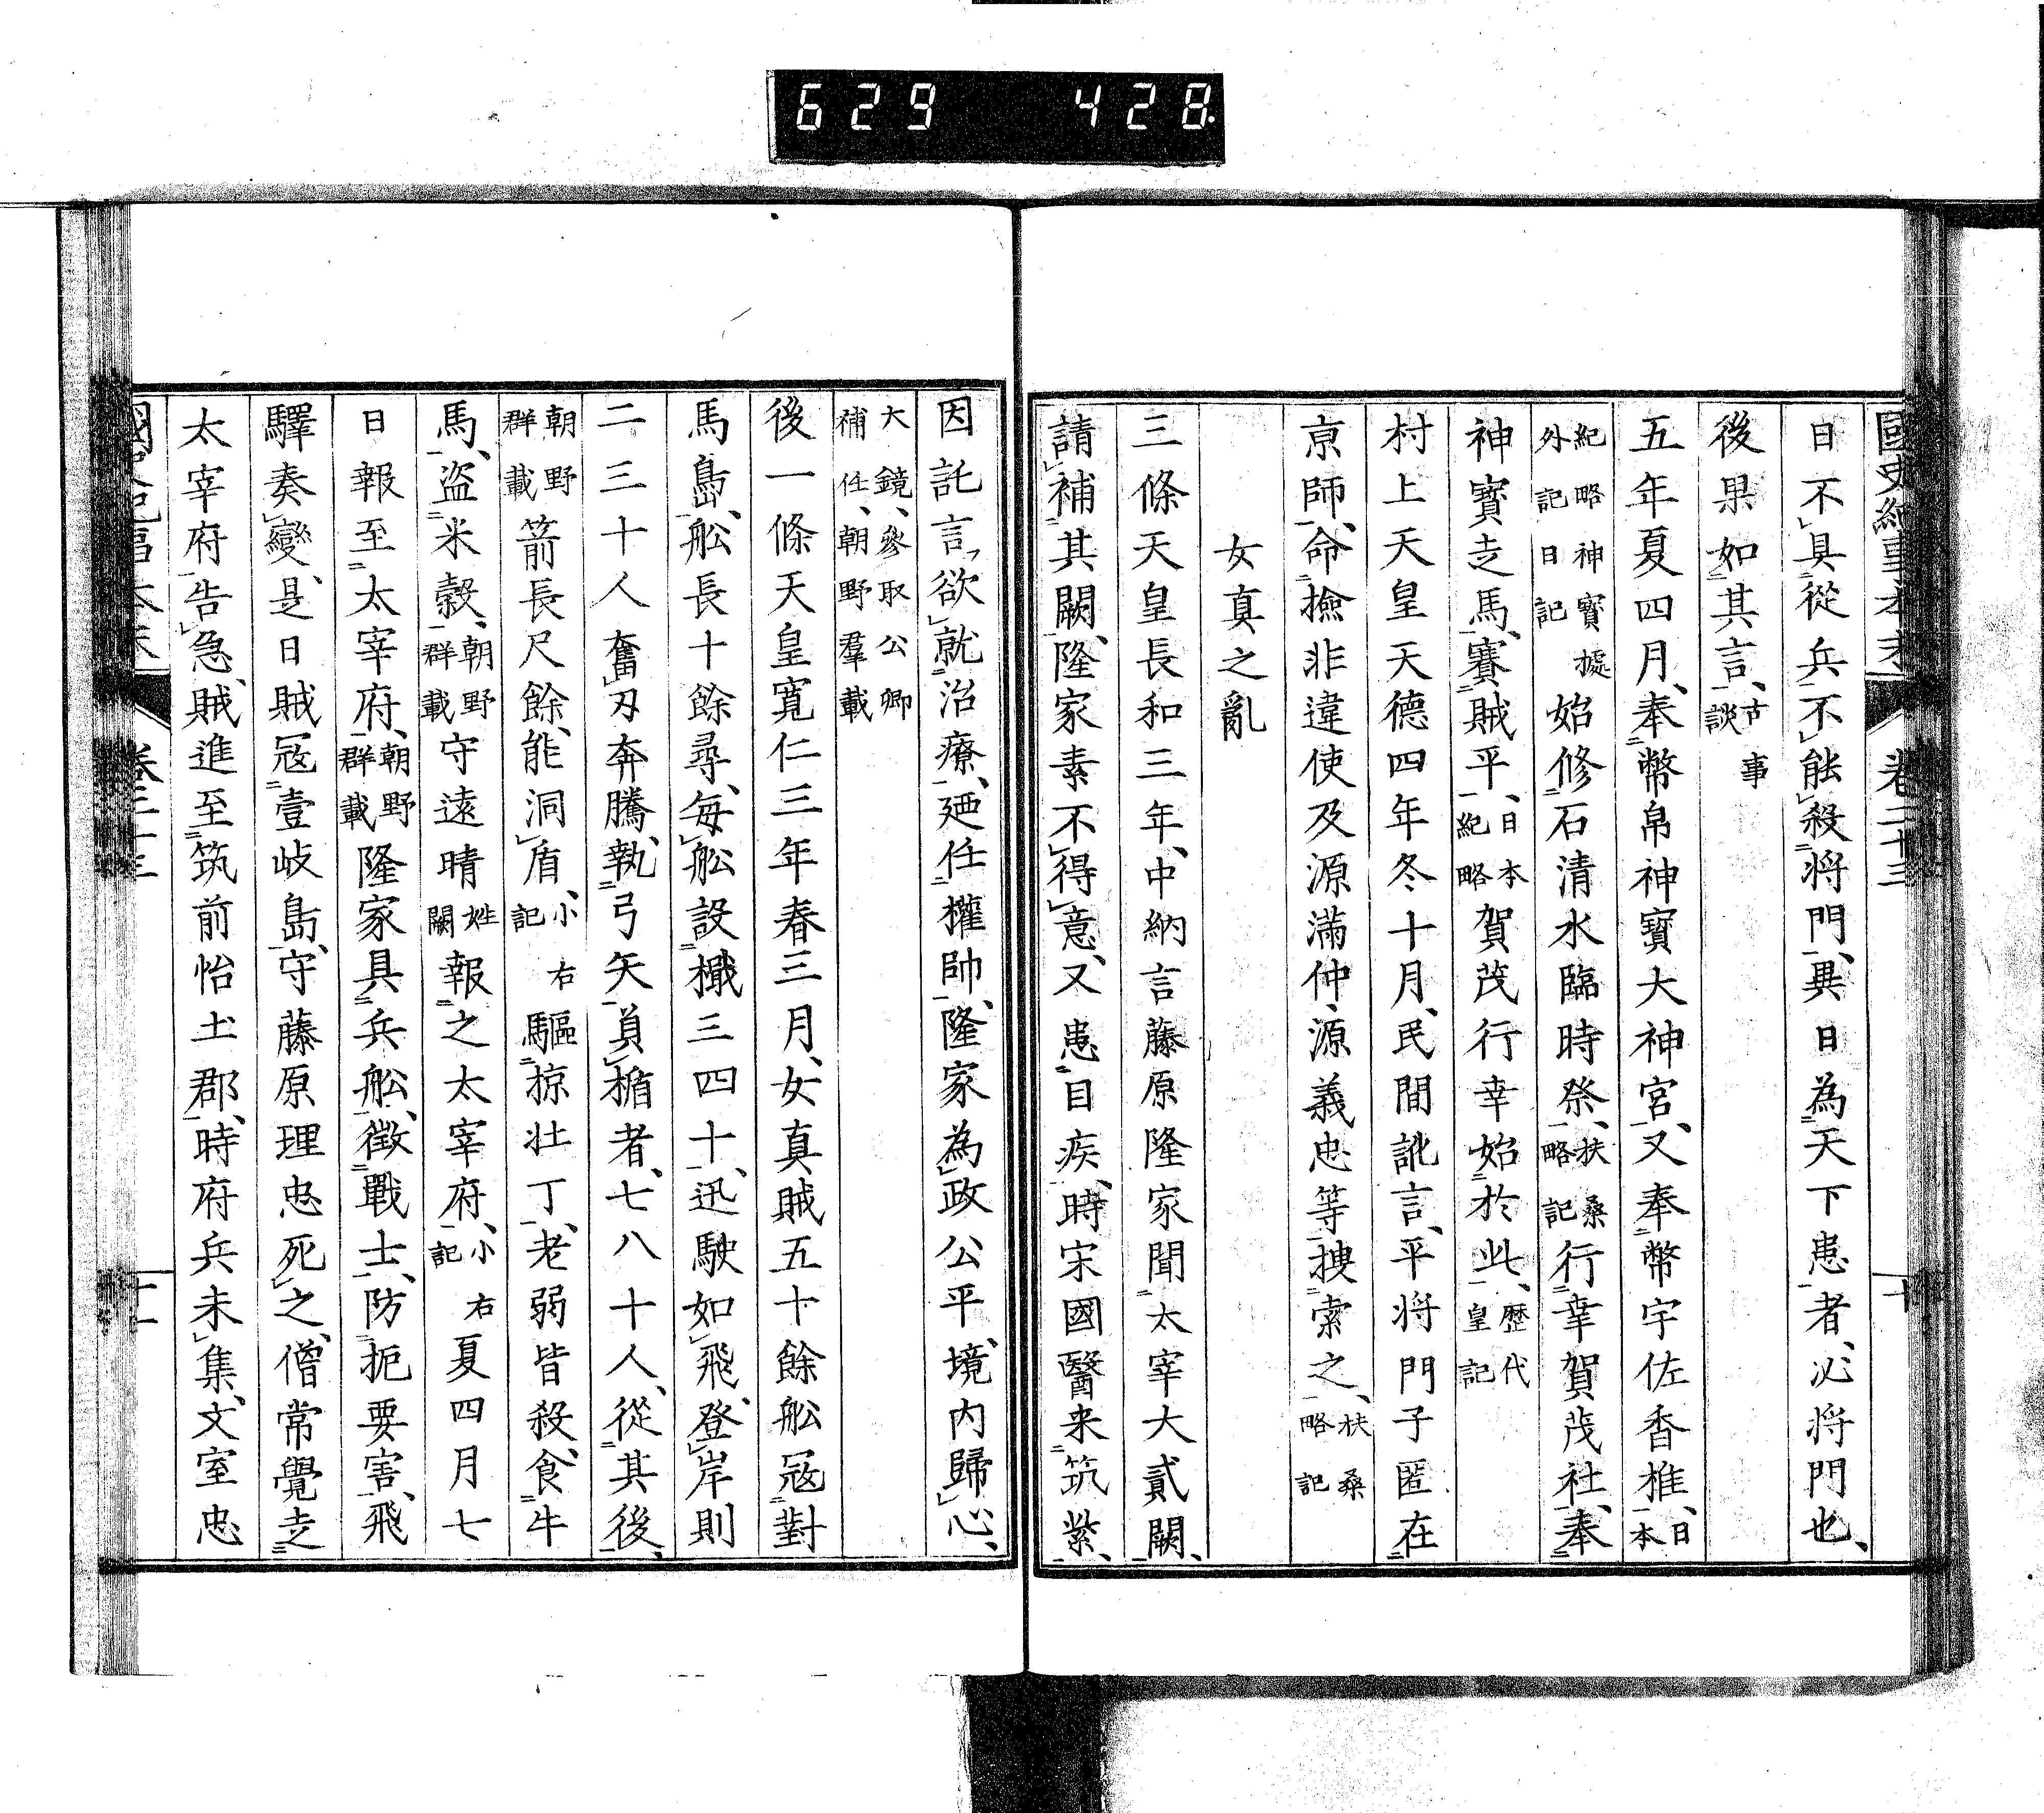 629 428
國史紀事本末 卷二十三 十
日不具從兵不能殺將門異日為天下患者必将門也
後果如其言古事談
五年夏四月奉幣帛神寶大神宮又奉幣宇佐香椎日本
紀略神寶據外記日記始修石清水臨時祭扶桑略記行幸賀茂社奉
神寶走馬賽賊平日本紀略賀茂行幸始於此歷代皇記
村上天皇天德四年冬十月民間訛言平将門子匿在
京師命撿非違使及源滿仲源義忠等搜索之扶桑略記
女真之亂
三條天皇長和三年中納言藤原隆家聞太宰大貳闕
請補其闕隆家素不得意又患目疾時宋國醫来筑紫
因託言欲就治療廼任權帥隆家為政公平境内歸心
大鏡參取公卿補任朝野羣載
後一條天皇寬仁三年春三月女真賊五十餘舩冦對
馬島舩長十餘尋每舩設檝三四十迅駛如飛登岸則
二三十人奮刃奔騰執弓矢負楯者七八十人從其後
朝野群載箭長尺餘能洞盾小右記驅掠壯丁老弱皆殺食牛
馬盗米穀朝野群載守遠晴姓闕報之太宰府小右記夏四月七
日報至太宰府朝野群載隆家具兵舩徵戰士防扼要害飛
驛奏變是日賊冦壹岐島守藤原理忠死之僧常覺走
太宰府告急賊進至筑前怡土郡時府兵未集文室忠